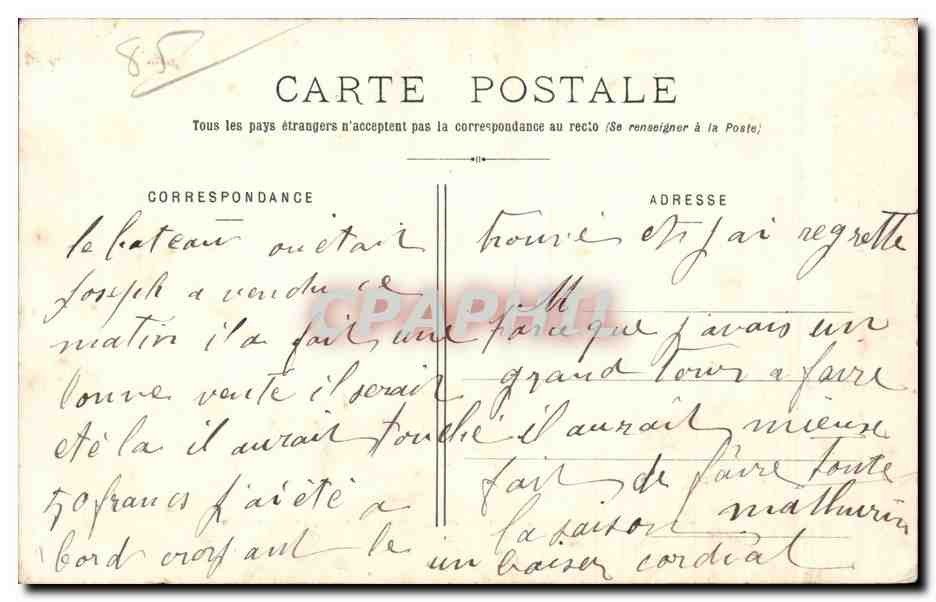 85
CARTE POSTALE
Tous les pays étrangers n'acceptent pas la correspondance au recto (Se renseigner à la Poste)
CORRESPONDANCE
le bateau ou était
Joseph a vendu ce
matin il a fait une
bonne vente il serait
eté la il aurait touché
50 francs j'ai été a
bord croyant le
ADRESSE
trouvé et j'ai regrette
M
parceque j'avais un
grand tour a faire
il aurait mieux
fait de faire toute
la saison mathurin
un baiser cordial
CPAPHIL